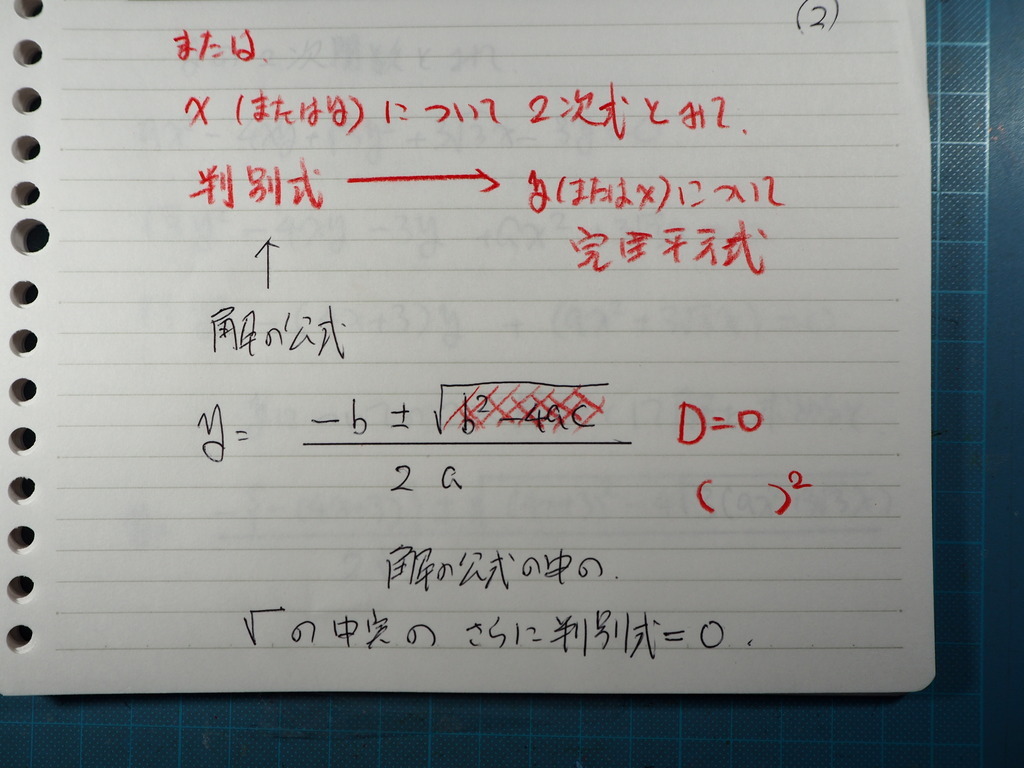 (2)
または、
x (またはy) について 2次式とみて、
判別式 → y(またはx)について
完全平方式
↑
解の公式
y = (-b ± √(b² - 4ac)) / 2a D=0
( )²
解の公式の中の、
√ の中実の さらに判別式=0.